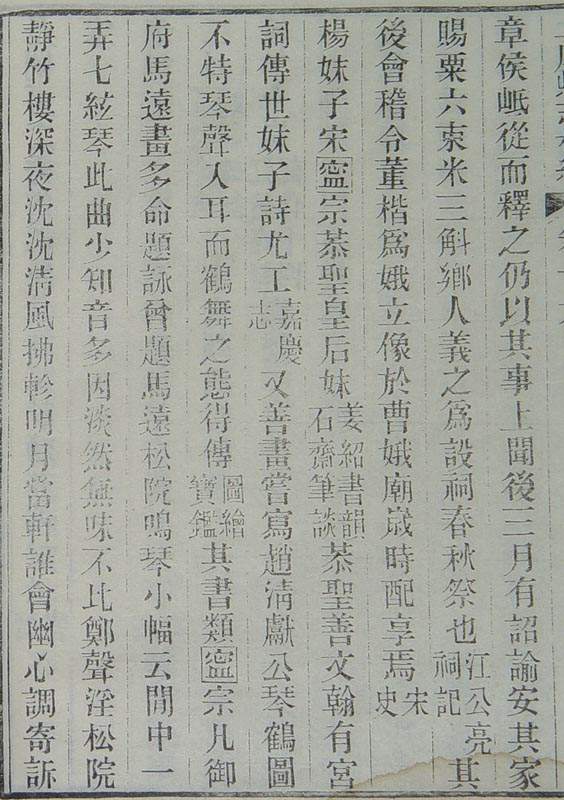 章侯岻從而釋之仍以其事上聞後三月有詔諭安其家
賜粟六束米三斛鄉人義之爲設祠春秋祭也江公亮祠記其
後會稽令董楷爲娥立像於曹娥廟歲時配享焉宋史
楊妹子宋寍宗恭聖皇后妹姜紹書韻石齋筆談恭聖善文翰有宮
詞傳世妹子詩尤工嘉慶志又善畫嘗寫趙淸獻公琴鶴圖
不特琴聲入耳而鶴舞之態得傳圖繪寶鑑其書類寍宗凡御
府馬遠畫多命題詠曾題馬遠松院鳴琴小幅云閒中一
弄七絃琴此曲少知音多因淡然無味不比鄭聲淫松院
靜竹樓深夜沈沈淸風拂軫明月當軒誰會幽心調寄訴